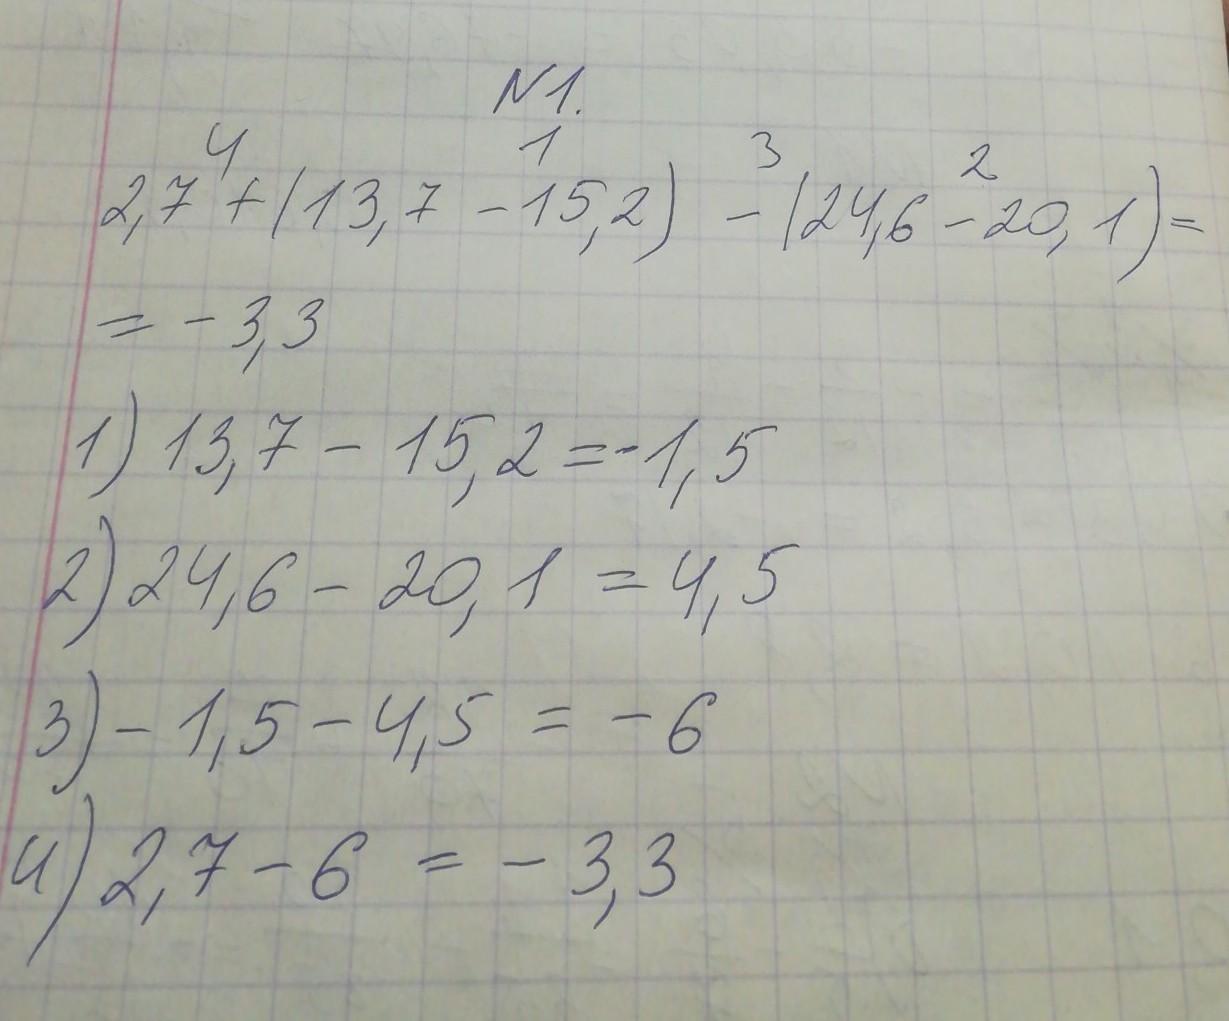 N1.
4 1 3 2
2,7 + (13,7 - 15,2) - (24,6 - 20,1) =
= - 3,3
1) 13,7 - 15,2 = -1,5
2) 24,6 - 20,1 = 4,5
3) - 1,5 - 4,5 = - 6
4) 2,7 - 6 = - 3,3